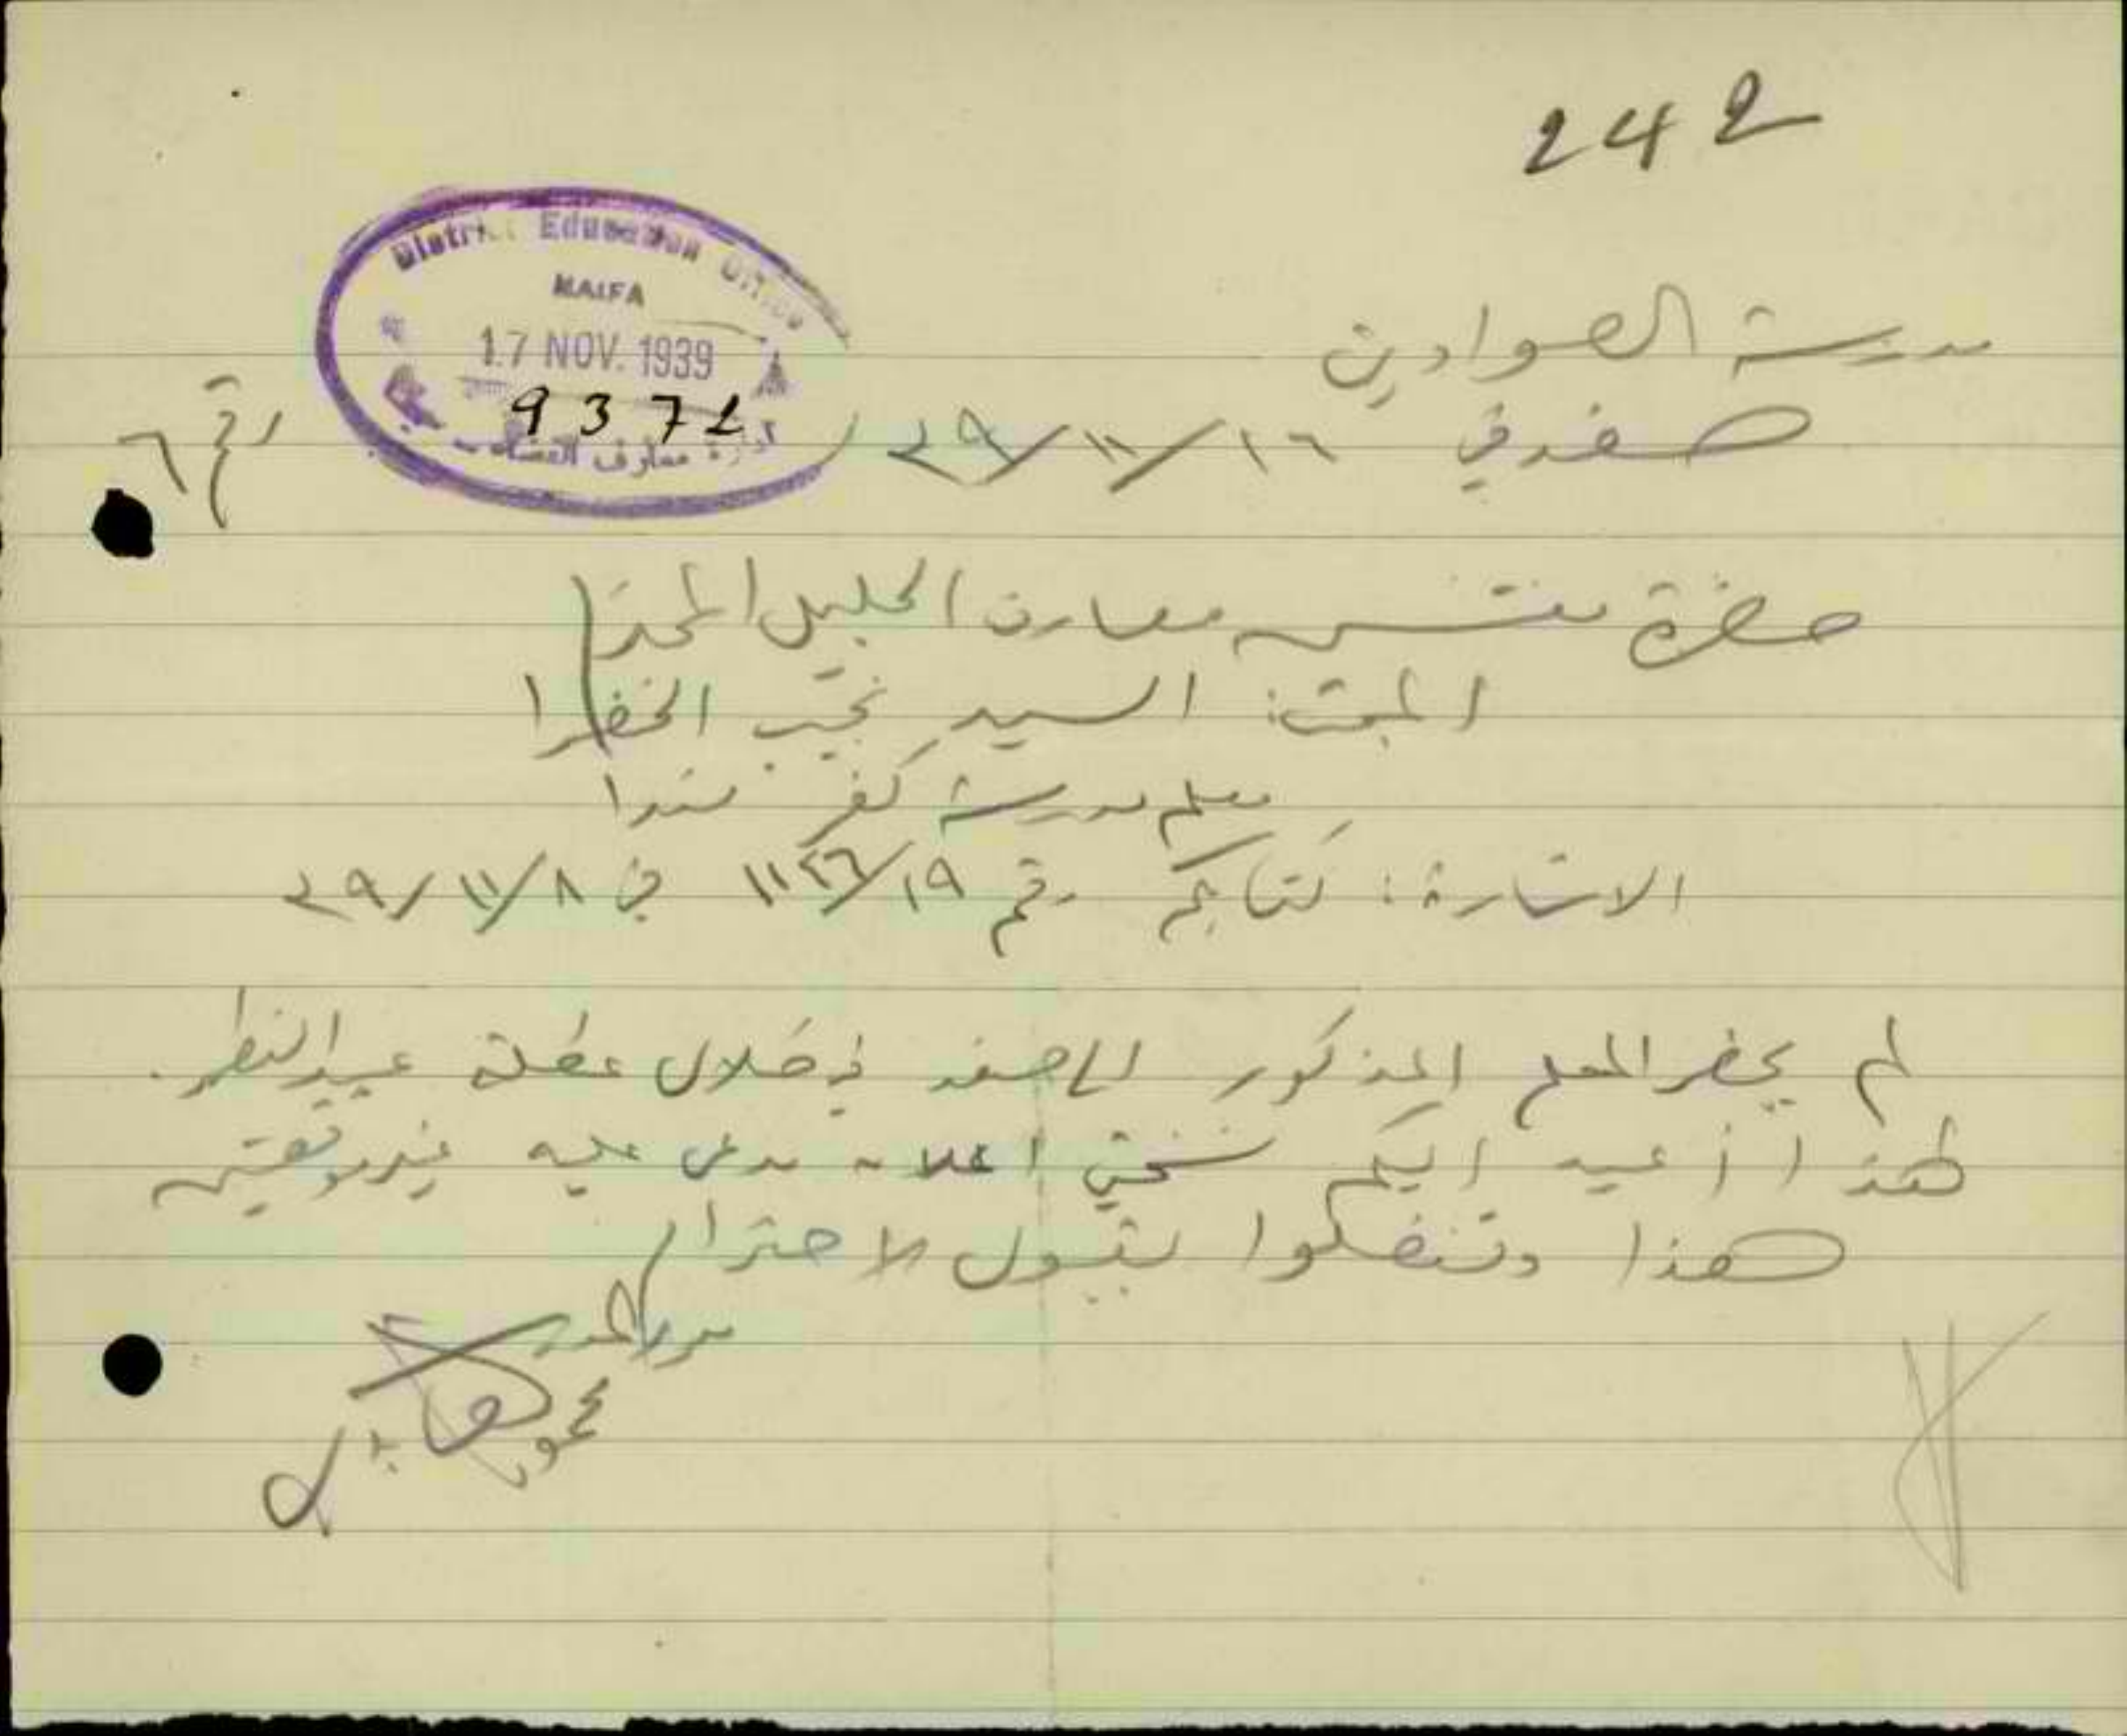 242
District Education Office
HAIFA
17 NOV. 1939
9371
ادارة معارف القضاء
مدرسة الصوادين
صفد في ١٦/١١/٣٩
رقم ٦
حضرة مفتش معارف الجليل المحترم
المبحث: السيد نجيب الخضرا
معلم مدرسة كفر مندا
الاشارة: كتابكم رقم ١١٢٦/١٩ في ٣٩/١١/٨
لم يحضر المعلم المذكور الى صفد في خلال عطلة عيد الفطر.
لهذا أعيد اليكم نسختي اعلان مدعى عليه غير موقعتين
هذا وتفضلوا بقبول الاحترام
مدير المدرسة
محمود